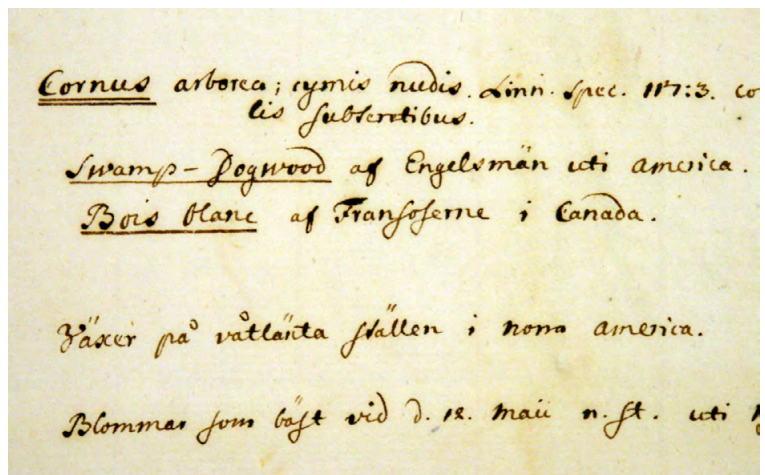 Cornus arborea; cymis nudis. Linn. spec. 117:3. co
lis subsertibus.
Swamp-Dogwood af Engelsmän uti America.
Bois blanc af Fransoserne i Canada.
Växer på våtlänta ställen i norra America.
Blommar som bäst vid d. 12. Maii n. st. uti